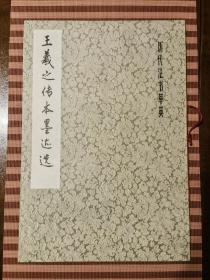 历代法书萃英
王羲之传本墨迹选